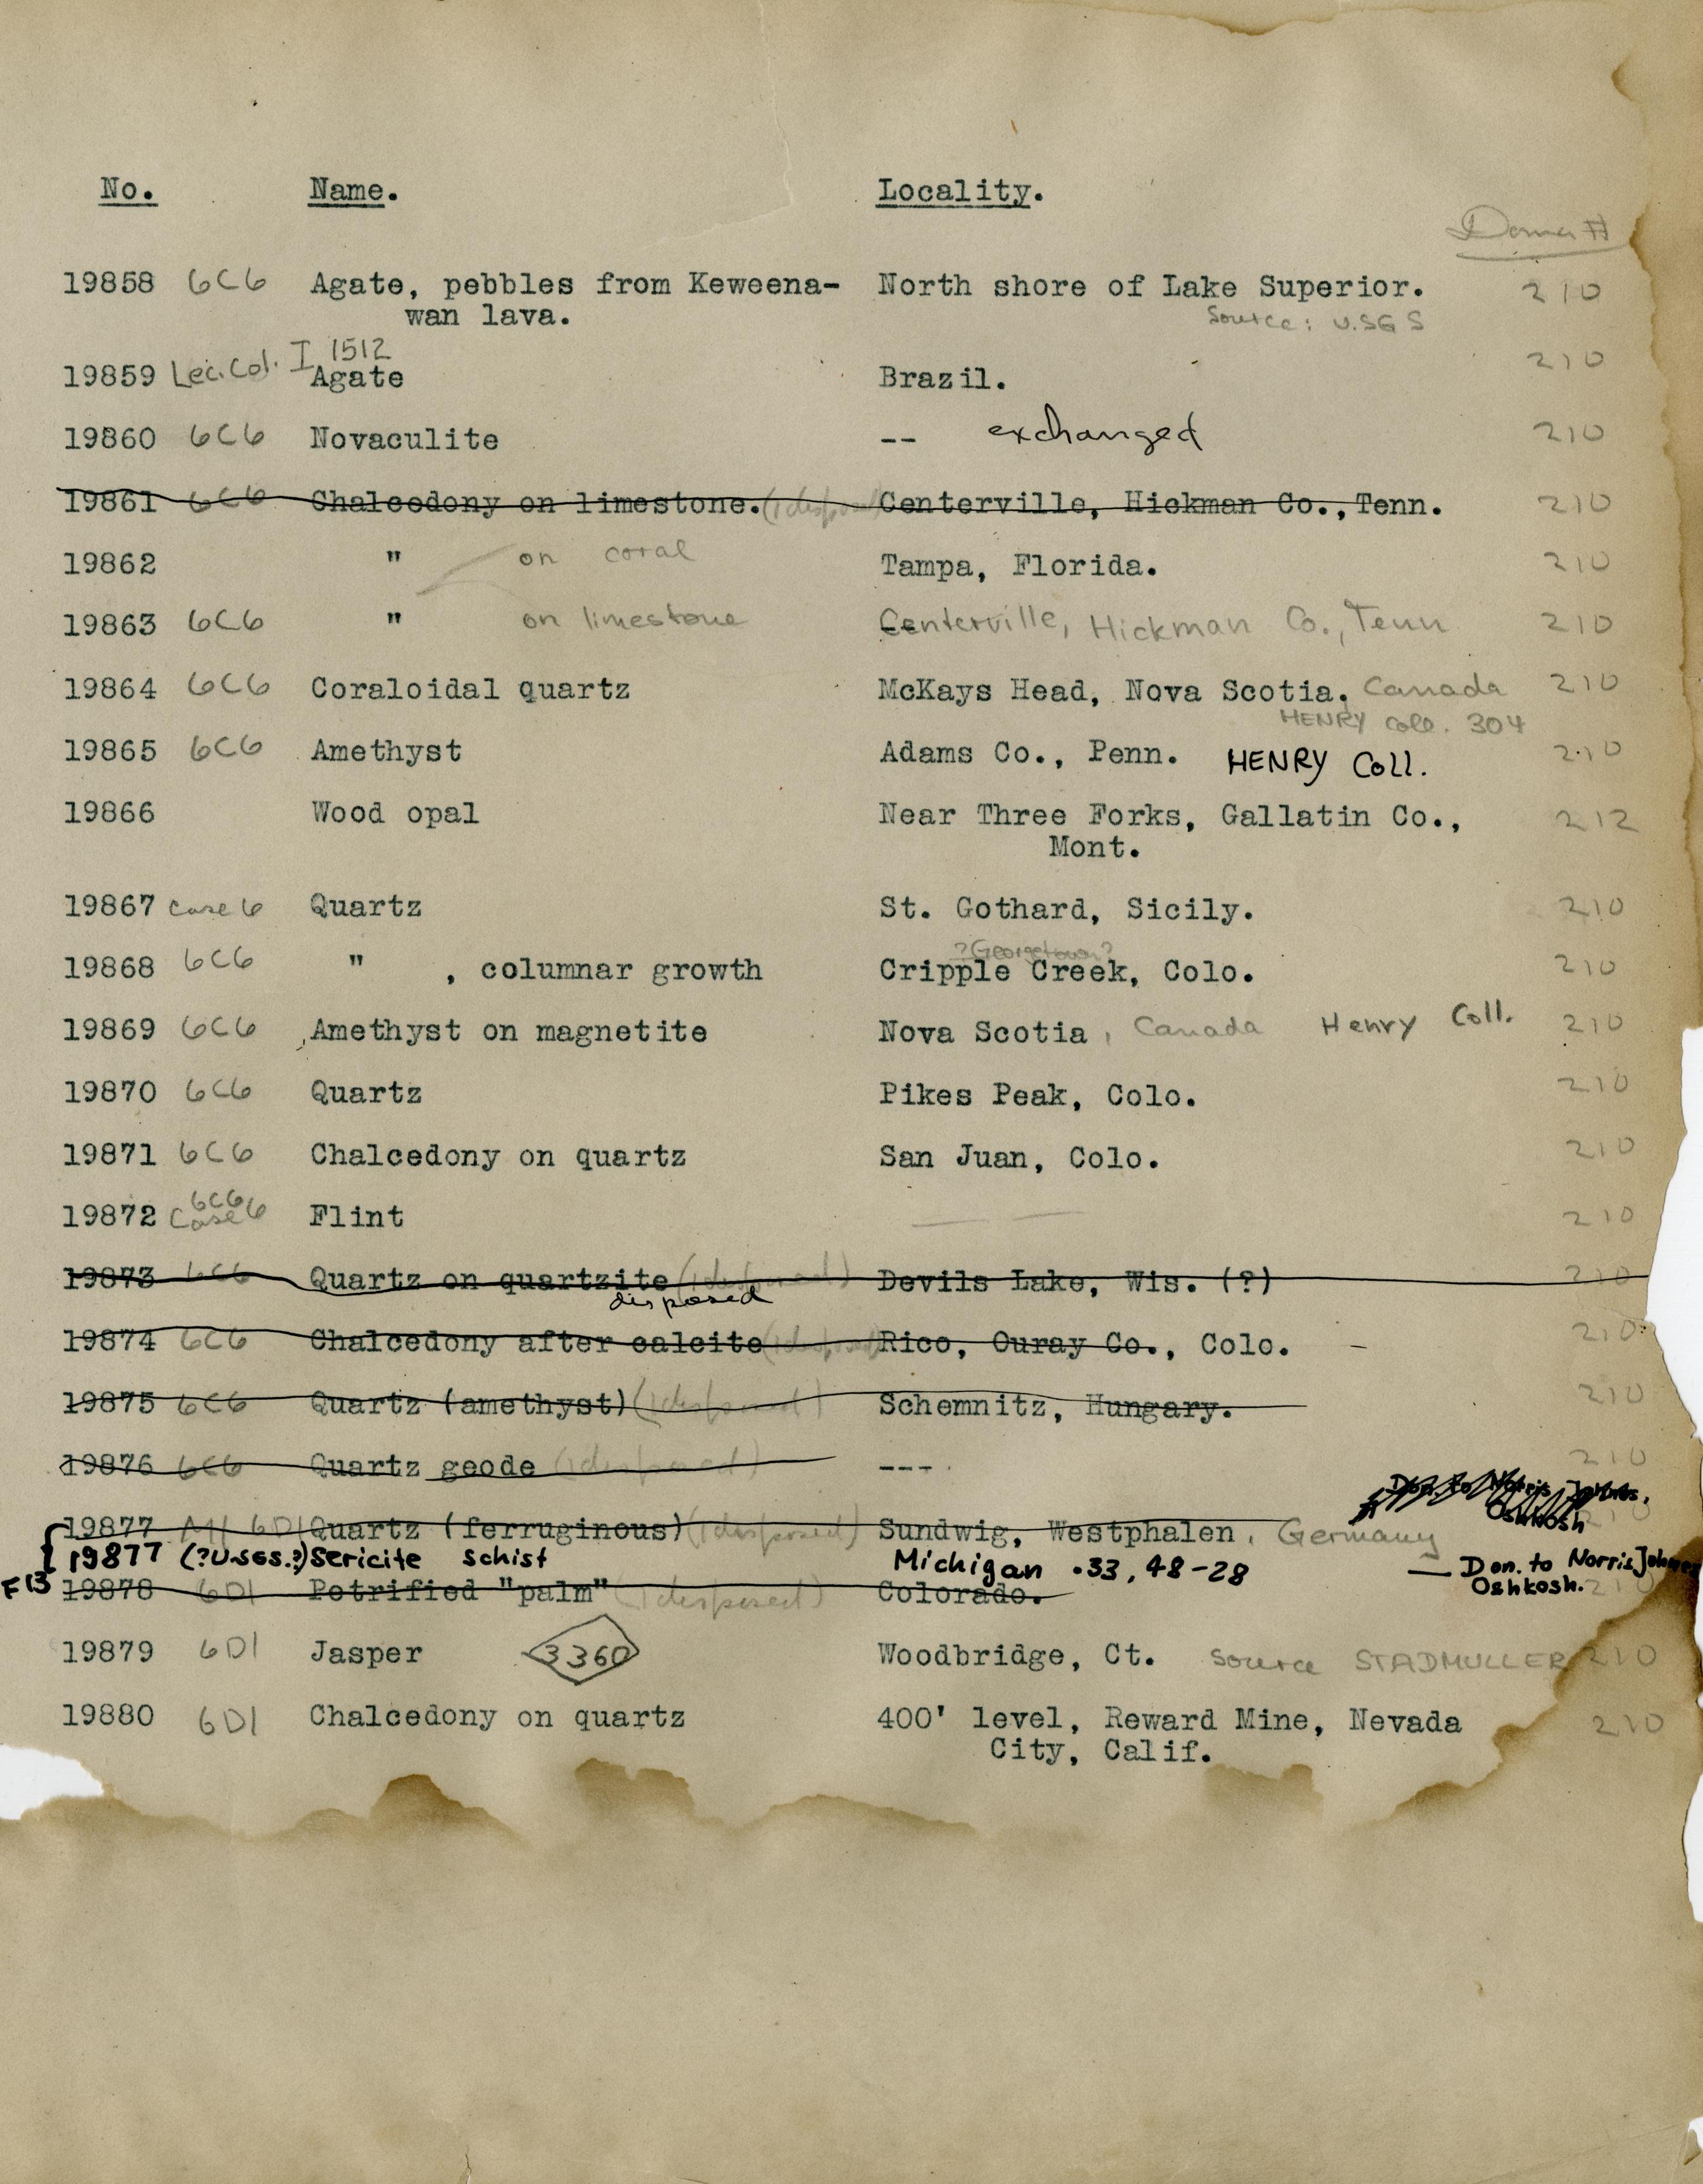 No. Name. Locality.
Donor #
19858 6C6 Agate, pebbles from Keweena- North shore of Lake Superior. 210
wan lava. Source: U.SGS
1512
19859 Lec. Col. I Agate Brazil. 210
19860 6C6 Novaculite -- exchanged 210
19861 6C6 Chalcedony on limestone. (1 disposed) Centerville, Hickman Co., Tenn. 210
19862 " on coral Tampa, Florida. 210
19863 6C6 " on limestone Centerville, Hickman Co., Tenn 210
19864 6C6 Coraloidal quartz McKays Head, Nova Scotia. Canada 210
HENRY coll. 304
19865 6C6 Amethyst Adams Co., Penn. HENRY Coll. 210
19866 Wood opal Near Three Forks, Gallatin Co., 212
Mont.
19867 Case 6 Quartz St. Gothard, Sicily. 210
?Georgetown?
19868 6C6 " , columnar growth Cripple Creek, Colo. 210
19869 6C6 Amethyst on magnetite Nova Scotia, Canada Henry Coll. 210
19870 6C6 Quartz Pikes Peak, Colo. 210
19871 6C6 Chalcedony on quartz San Juan, Colo. 210
6C6
19872 Case 6 Flint — — 210
19873 6C6 Quartz on quartzite (1 disposed) Devils Lake, Wis. (?) 210
disposed
19874 6C6 Chalcedony after calcite (1 disposed) Rico, Ouray Co., Colo. - 210
19875 6C6 Quartz (amethyst) (1 disposed) Schemnitz, Hungary. 210
19876 6C6 Quartz geode (1 disposed) --- 210
Don. to Norris Johnes,
Oshkosh
19877 6D1 Quartz (ferruginous) (1 disposed) Sundwig, Westphalen, Germany 210
19877 (?U.SGS.?) Sericite schist Michigan .33, 48-28 — Don. to Norris
Oshkosh.
F13 19878 6D1 Petrified "palm" (1 disposed) Colorado. 210
19879 6D1 Jasper 3360 Woodbridge, Ct. Source STADMULLER 210
19880 6D1 Chalcedony on quartz 400' level, Reward Mine, Nevada 210
City, Calif.